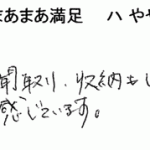 まあまあ満足 ハ やや
間取り、収納もし
感じています。